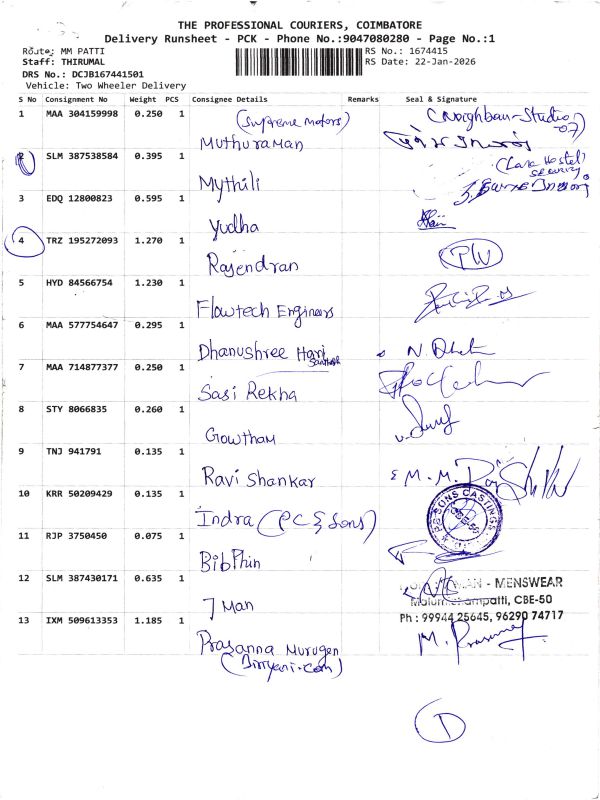 THE PROFESSIONAL COURIERS, COIMBATORE
Delivery Runsheet - PCK - Phone No.:9047080280 - Page No.:1
Route: MM PATTI
RS No.: 1674415
Staff: THIRUMAL
RS Date: 22-Jan-2026
DRS No.: DCJB167441501
Vehicle: Two Wheeler Delivery
S No Consignment No Weight PCS Consignee Details Remarks Seal & Signature
1 MAA 304159998 0.250 1 (Supreme Motors) Muthuraman
2 SLM 387538584 0.395 1 Mythili
3 EDQ 12800823 0.595 1 Yudha
4 TRZ 195272093 1.270 1 Rajendran
5 HYD 84566754 1.230 1 Flowtech Engineers
6 MAA 577754647 0.295 1 Dhanushree Hari
7 MAA 714877377 0.250 1 Sasi Rekha
8 STY 8066835 0.260 1 Gowtham
9 TNJ 941791 0.135 1 Ravi Shankar
10 KRR 50209429 0.135 1 Indra (PC & Sons)
11 RJP 3750450 0.075 1 Bibthin
12 SLM 387430171 0.635 1 J Man
- MENSWEAR
CBE-50
Ph : 99944 25645, 96290 74717
13 IXM 509613353 1.185 1 Prasanna Murugen
(Birryani.com)
1